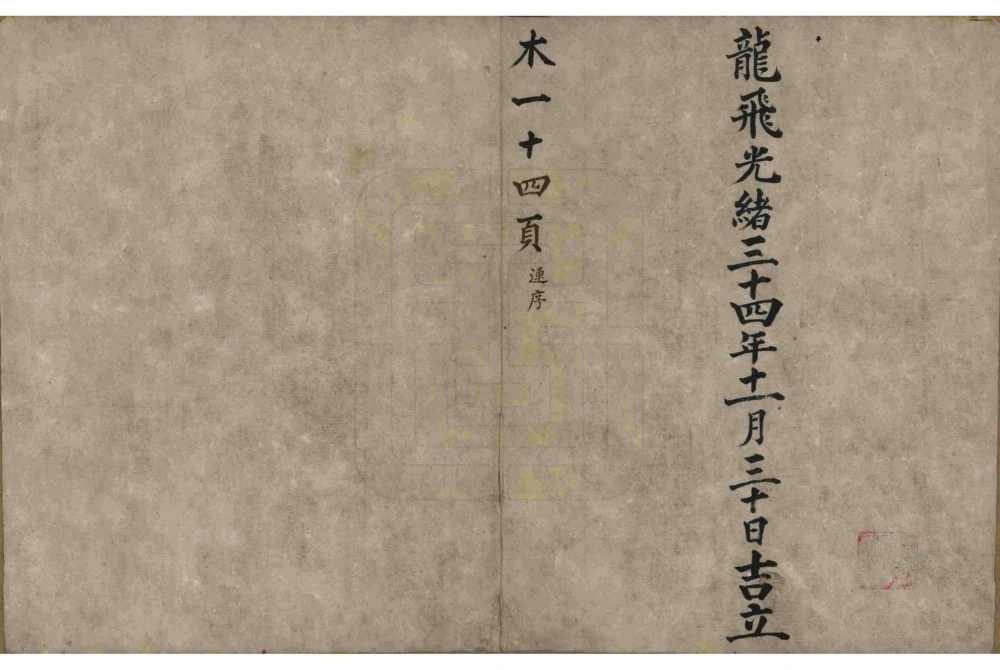 龍飛光緒三十四年十一月三十日吉立
木一十四頁連序